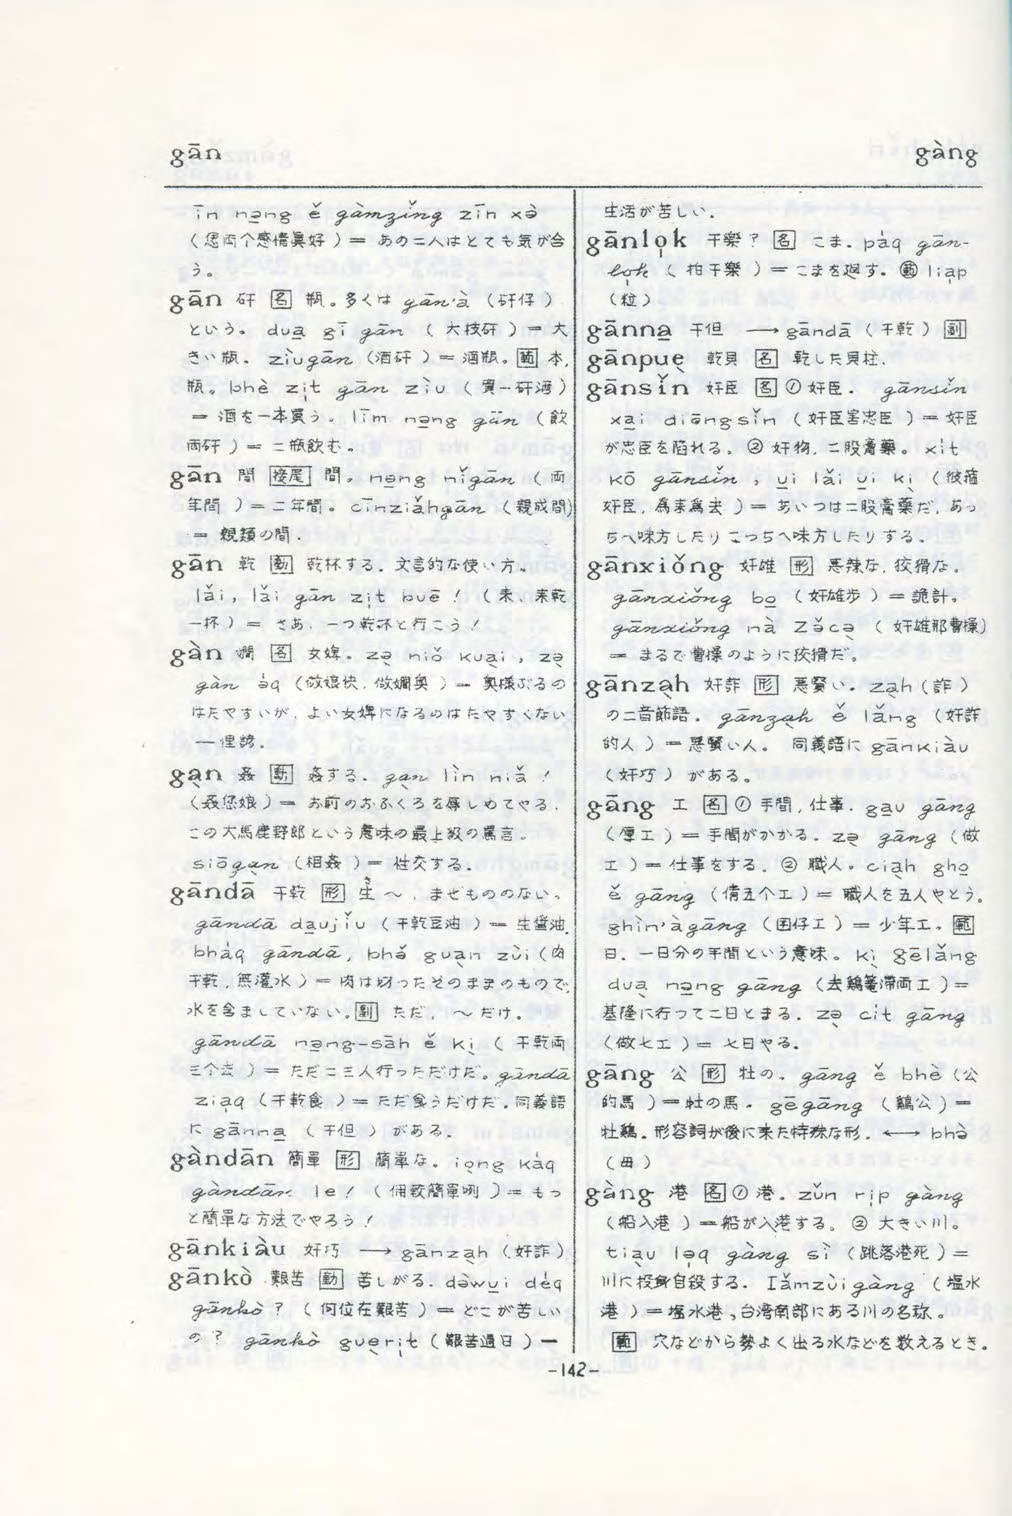 gān
gàng
īn nə̱ng ě gàmzǐng zīn xə̀
（恁両个感情眞好）＝ あの二人はとても気が合
う。
gān 矸 名 瓶。多くは gān'à（矸仔）
という。 dua̱ gī gān （大枝矸）＝大
きい瓶． zìugān（酒矸）＝酒瓶。範 本，
瓶。 bhè zi̍t gān zìu（買一矸酒）
＝ 酒を一本買う． līm nə̱ng gān（飲
両矸）＝ 二瓶飲む。
gān 間 接尾 間。 nə̱ng nǐgān （両
年間 ）＝二年間。 cīnziǎhgān（親成間）
＝ 親類の間．
gān 乾 動 乾杯する．文言的な使い方。
lǎi, lǎi gān zi̍t buē！（来、来乾
一杯）＝ さあ，一つ乾杯と行こう！
gàn 嫺 名 女婢。
（做娘快，做嫺奥）＝ 奥様ぶるの
はたやすいが，よい女婢になるのはたやすくない
―俚諺．
ga̱n 姦 動 姦する． ga̱n lìn niǎ！
（姦恁娘）＝ お前のおふくろを辱しめてやる．
この大馬鹿野郎という意味の最上級の罵言。
siōga̱n（相姦）＝ 性交する．
gāndā 干乾 形 生～，まぜもののない。
き
gāndā da̱ujǐu（干乾豆油）＝ 生醤油．
（肉
干乾，無灌水）＝ 肉は切ったそのままのもので，
水を含ましていない。副 ただ，～だけ．
gāndā nə̱ng-sāh ě kì（干乾両
三个去 ）＝ ただ二三人行っただけだ。gāndā
zia̍q（干乾食 ）＝ただ食うだけだ．同義語
に gānna̱ （干但 ）がある．
gàndān 簡單 形 簡単な。 káq
gàndān le！（佣較簡單咧 ）＝ もっ
と簡単な方法でやろう！
gānkiàu 奸巧 → gānza̱h（奸詐）
gānkò 艱苦 動 苦しがる．
gānkò？（何位在艱苦）＝ どこが苦しい
の？ gānkò（艱苦過日）＝
生活が苦しい．
gānlo̍k 干樂？ 名 こま． páq gān-
lo̍k（拍干樂 ）＝こまを廻す。範 lia̍p
（粒）
gānna̱ 干但 → gāndā（干乾）副
gānpuē 乾貝 名 乾した貝柱．
gānsǐn 奸臣 名 ①奸臣． gānsǐn
xa̱i diāngsǐn（奸臣害忠臣）＝ 奸臣
が忠臣を陷れる。②奸物，二股膏藥。 xi̍t
kō gānsǐn, u̱i lǎi u̱i kì（彼箍
奸臣，爲來爲去 ）＝ あいつは二股膏薬だ，あっ
ちへ味方したりこっちへ味方したりする．
gānxiǒng 奸雄 形 悪辣な，狡猾な。
gānxiǒng bo̱（奸雄步）＝詭計。
gānxiǒng nà（奸雄那曹操）
＝ まるで曹操のように狡猾だ。
gānza̱h 奸詐 形 悪賢い。 za̱h（詐）
の二音節語． gānza̱h ě lǎng（奸詐
的人）＝悪賢い人。 同義語に gānkiàu
（奸巧）がある。
gāng 工 名 ①手間，仕事． ga̱u gāng
（厚工）＝手間がかかる． gāng（做
工）＝仕事をする．②職人。 ciàh gho̱
ě gāng（倩五个工）＝ 職人を五人やとう．
ghìn'àgāng（囝仔工）＝少年工。範
日．一日分の手間という意味。 kì gēlǎng
dua nə̱ng gāng（去鷄篭滯両工）＝
基隆に行って二日とまる． cít gāng
（做七工）＝ 七日やる。
gāng 公 形 牡の． gāng ě bhè（公
的馬 ）＝牡の馬． gēgāng （鷄公）＝
牡鶏．形容詞が後に来た特殊な形．←→ bhə̀
（母）
gàng 港 名 ①港． zǔn ri̍p gàng
（船入港 ）＝船が入港する． ②大きい川。
tia̱u lə̍q gàng sì（跳落港死）＝
川に投身自殺する． Iǎmzùigàng（塩水
港）＝塩水港，台湾南部にある川の名称。
範 穴などから勢よく出る水などを数えるとき。
-142-